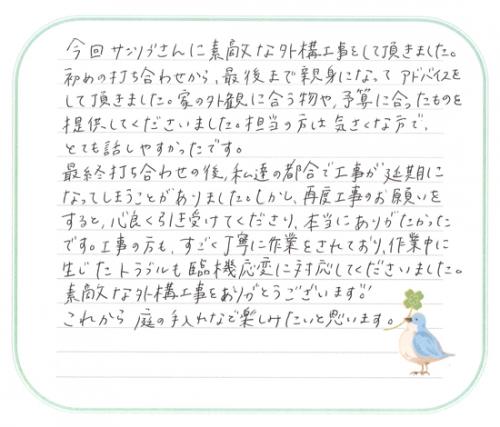 今回サンリブさんに素敵な外構工事をして頂きました。
初めの打ち合わせから、最後まで親身になってアドバイスを
して頂きました。家の外観に合う物や、予算に合ったものを
提供してくださいました。担当の方は気さくな方で、
とても話しやすかったです。
最終打ち合わせの後、私達の都合で工事が延期に
なってしまうことがありました。しかし、再度工事のお願いを
すると、心良く引き受けてくださり、本当にありがたかった
です。工事の方も、すごく丁寧に作業をされており、作業中に
生じたトラブルも臨機応変に対応してくださいました。
素敵な外構工事をありがとうございます!!
これから庭の手入れなど楽しみたいと思います。